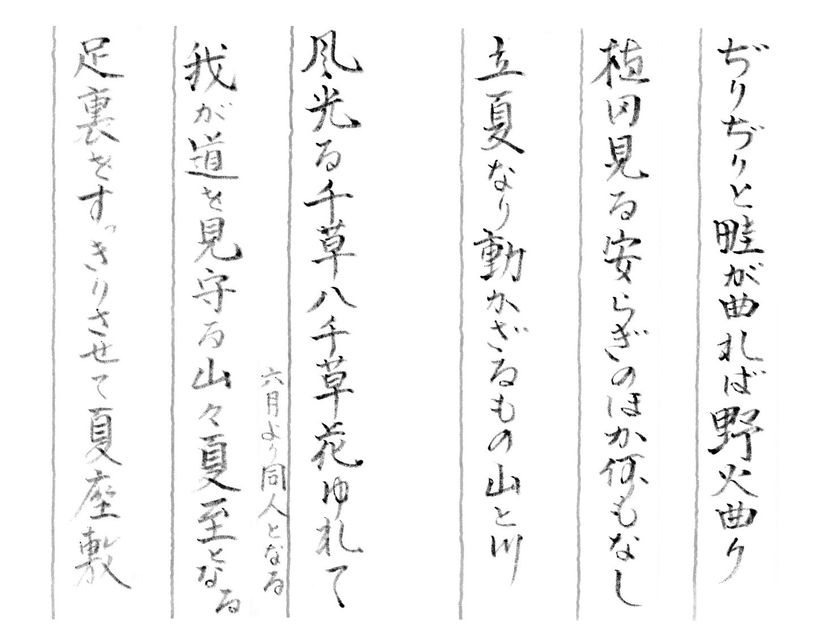 ぢりぢりと畦が曲れば野火曲り
植田見る安らぎのほか何もなし
立夏なり動かざるもの山と川
風光る千草八千草花ゆれて
六月より同人となる
我が道を見守る山々夏至となる
足裏をすっきりさせて夏座敷